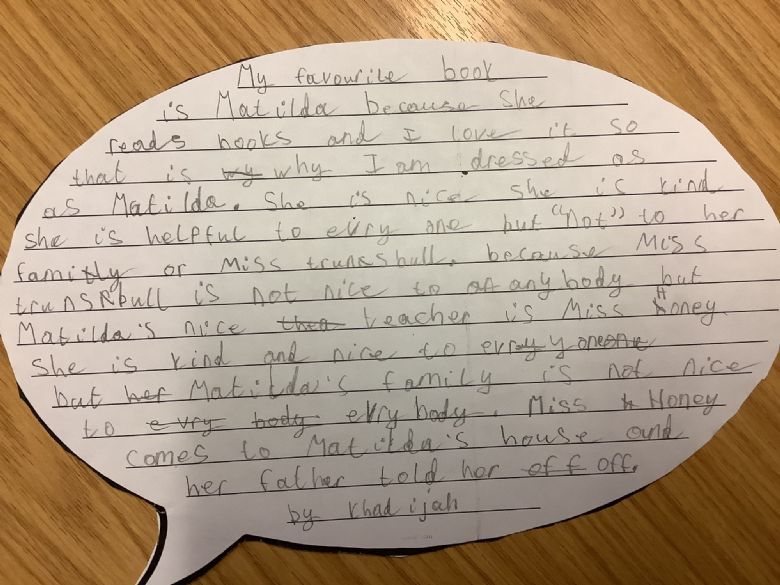 My favourite book
is Matilda because she
reads books and I love it so
that is wy why I am dressed as
as Matilda. She is nice she is kind
she is helpful to evry one but "not" to her
family or Miss trunsbull. because Miss
trunsnbull is not nice to an any body but
Matilda's nice thea teacher is Miss Honey
She is kind and nice to evry y oneone
but her Matilda's family is not nice
to evry body evry body. Miss h Honey
comes to Matilda's house and
her father told her of f off.
by Khadijah